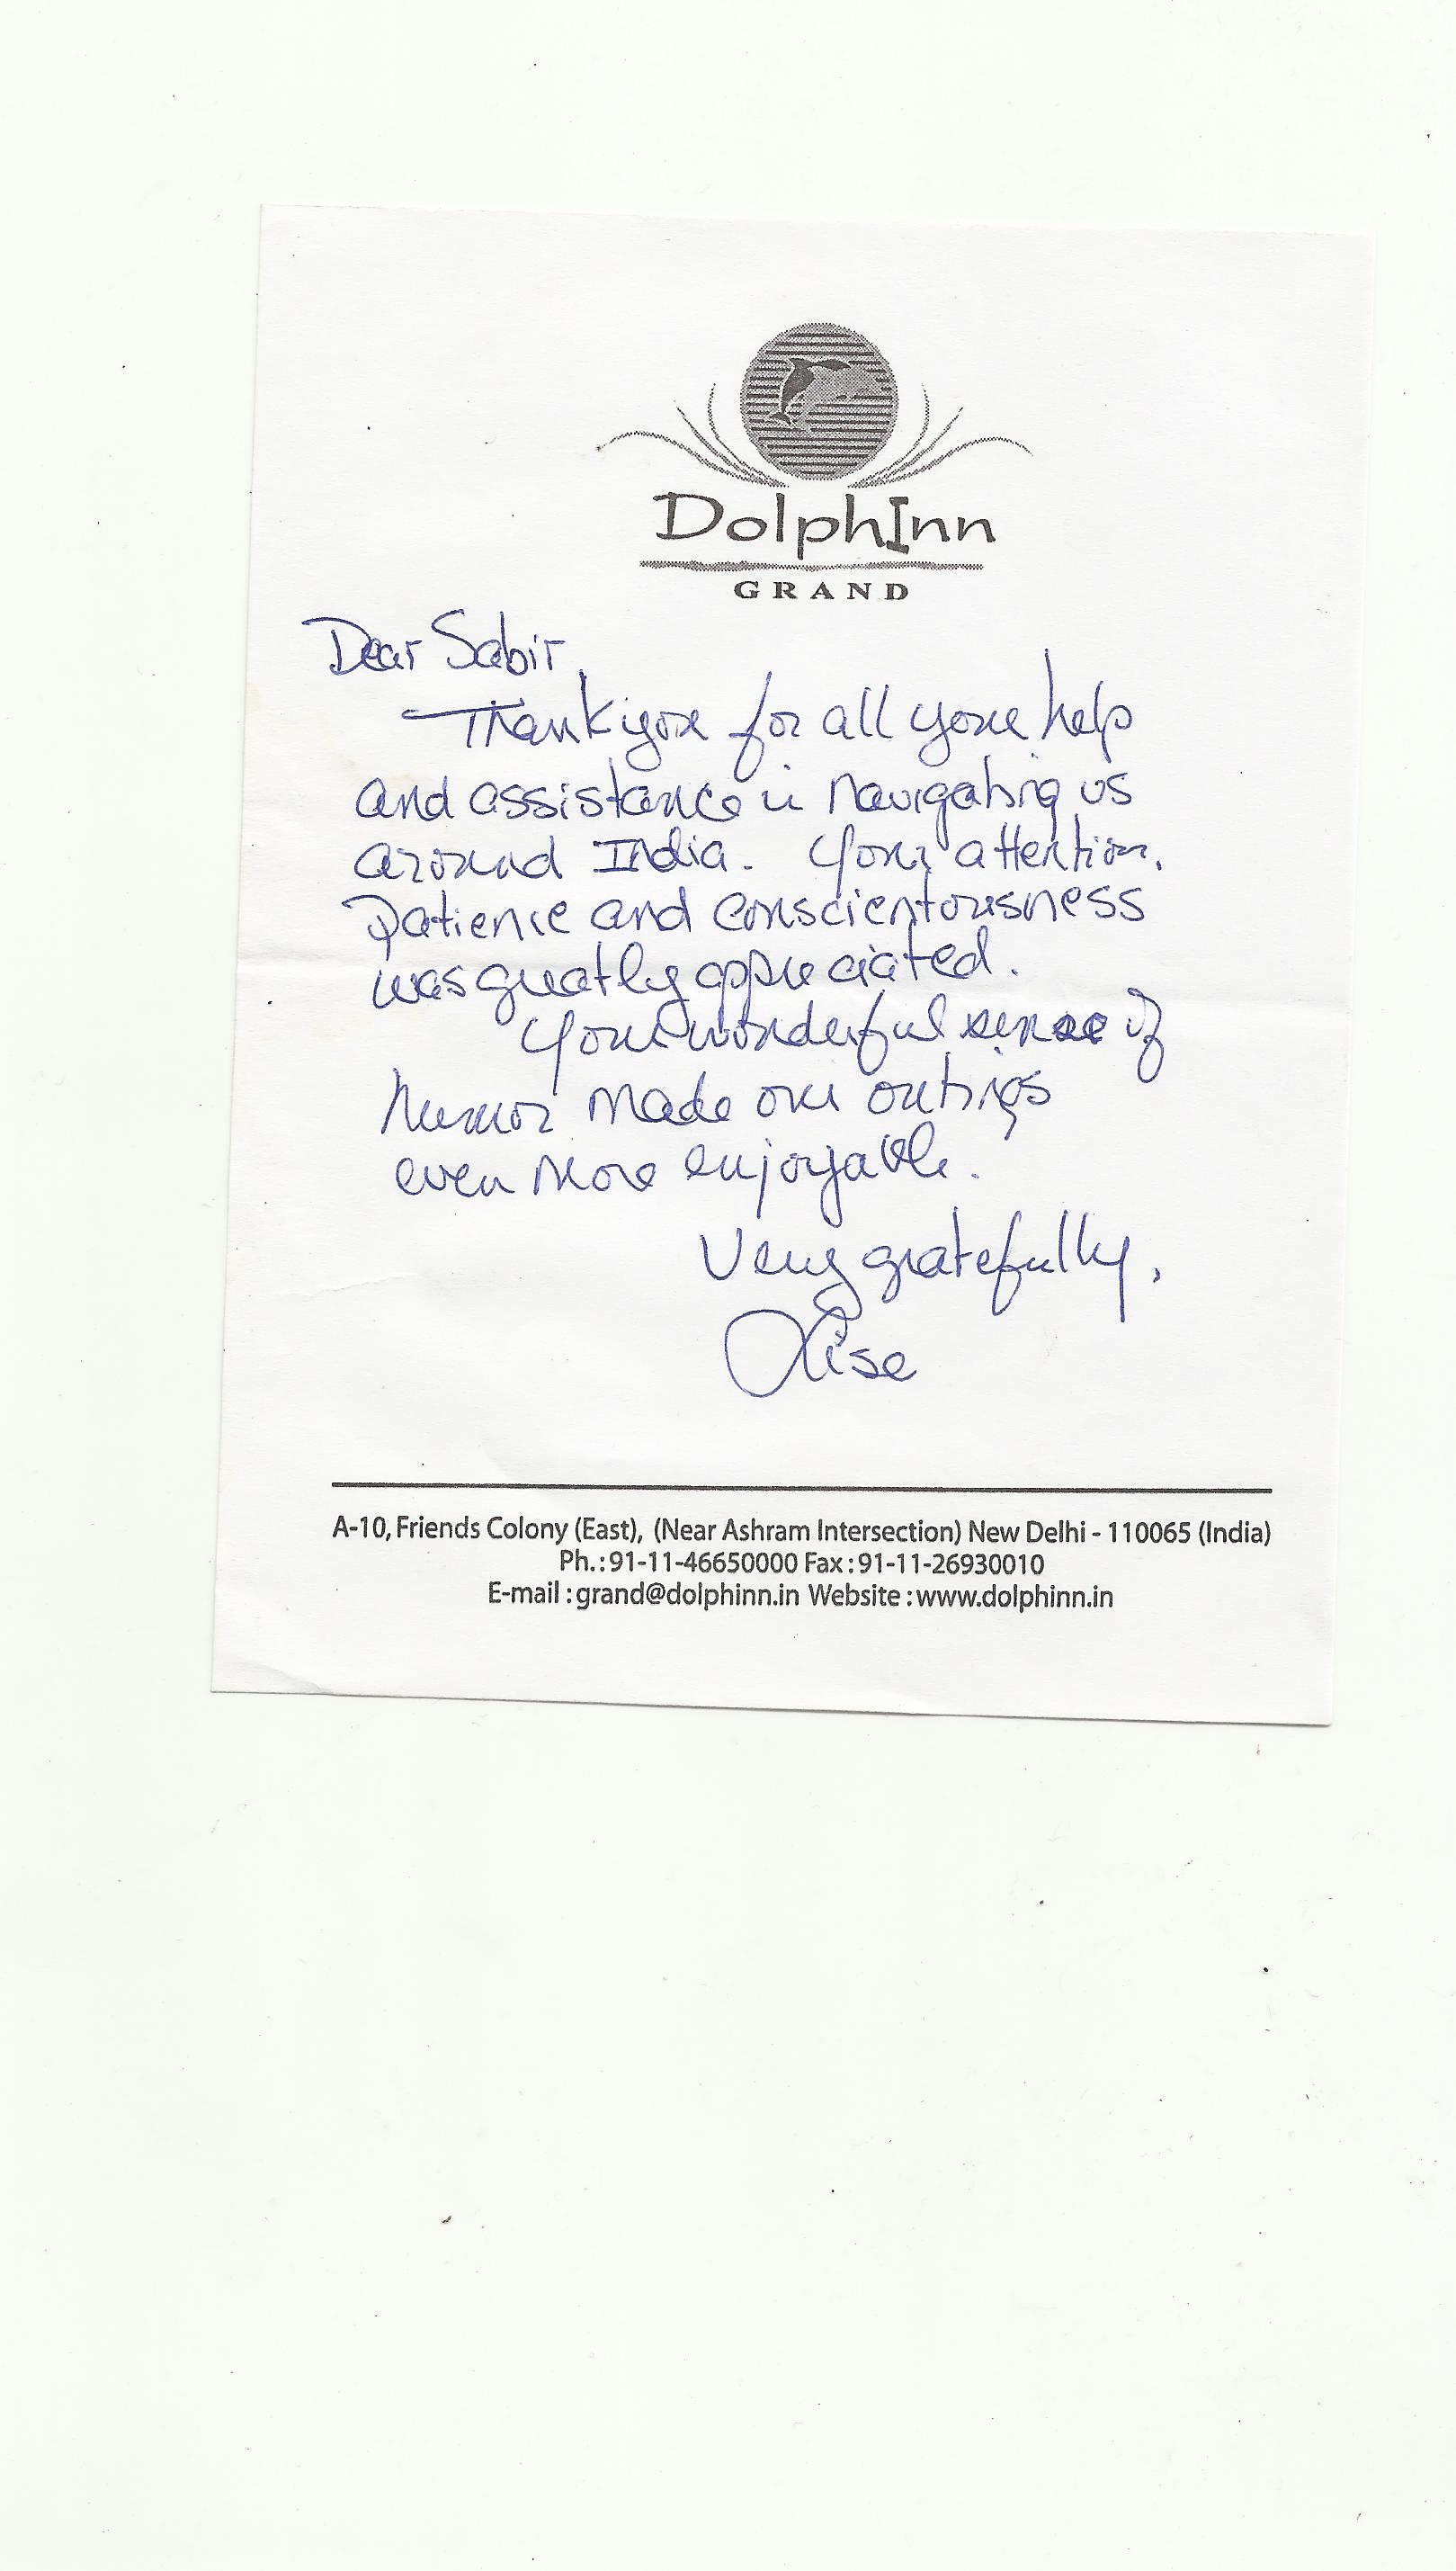 DolphInn
GRAND
Dear Sabir,
Thank you for all your help
and assistance in navigating us
around India. Your attention,
patience and conscientousness
was greatly appreciated.
Your wonderful sense of
humor made our outings
even more enjoyable.
Very gratefully,
Lise
A-10, Friends Colony (East), (Near Ashram Intersection) New Delhi - 110065 (India)
Ph.: 91-11-46650000 Fax : 91-11-26930010
E-mail : grand@dolphinn.in Website : www.dolphinn.in